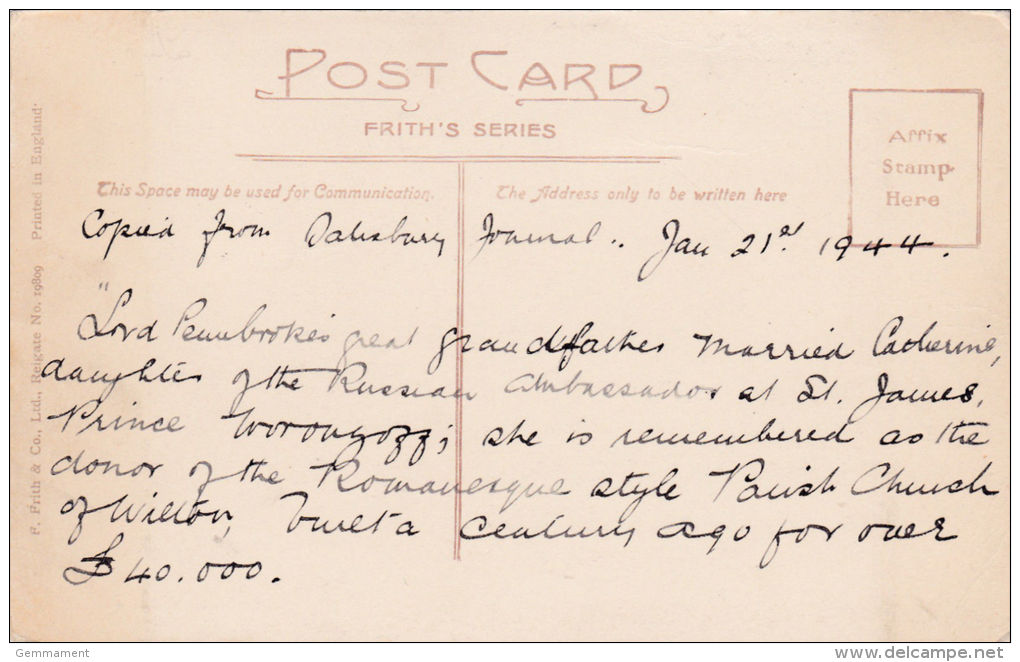 POST CARD
FRITH'S SERIES
This Space may be used for Communication.
The Address only to be written here
Affix
Stamp
Here
F. Frith & Co., Ltd., Reigate No. 19809 Printed in England.
Copied from Salisbury Journal.. Jan 21st 1944.
"Lord Pembroke's great grandfather married Catherine,
daughter of the Russian Ambassador at St. James,
Prince Worongozz; she is remembered as the
donor of the Romanesque style Parish Church
of Wilton, built a century ago for over
£40.000.
Gemmament
delcampe.net